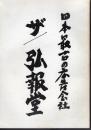 日本最古の広告会社
ザ/弘報堂